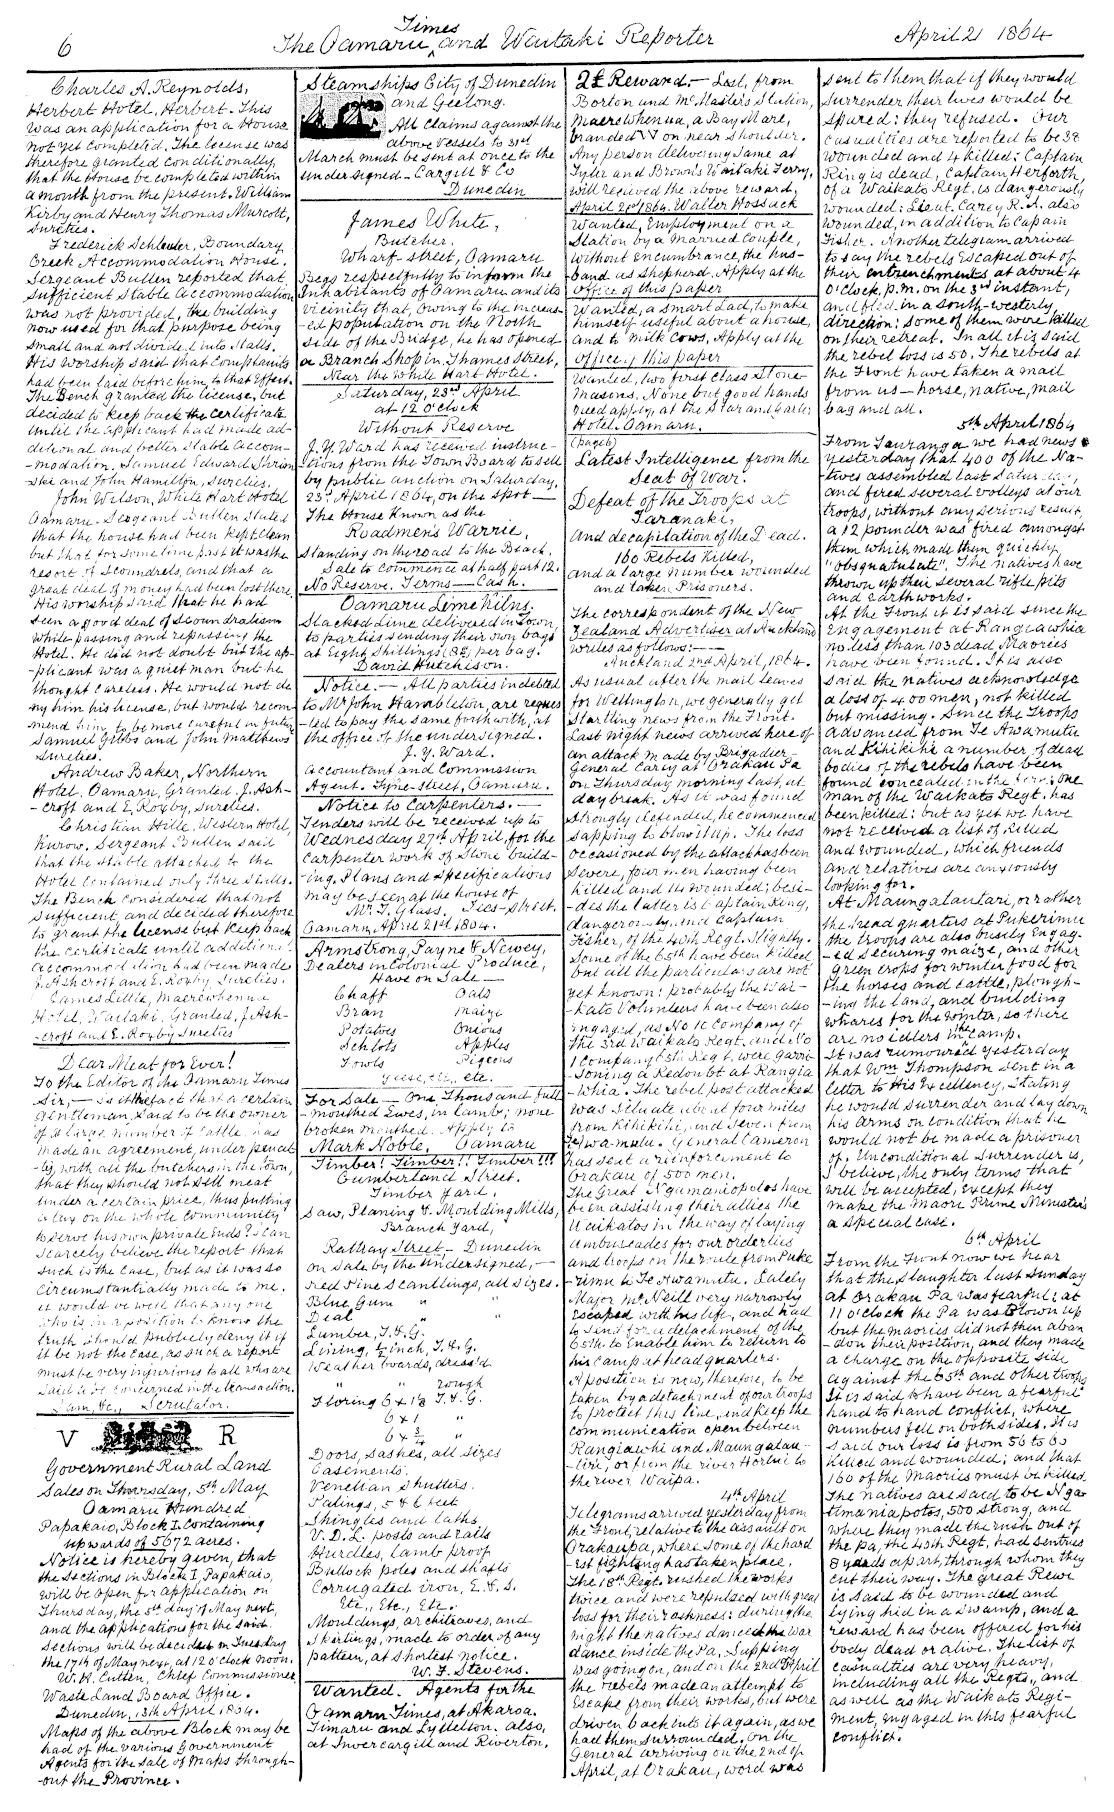 6
The Oamaru Times and Waitaki Reporter
April 21 1864
Charles A. Reynolds,
Herbert Hotel, Herbert. This
was an application for a House
not yet completed. The license was
therefore granted conditionally,
that the House be completed within
a month from the present. William
Kirby and Henry Thomas Murcott,
Sureties.
Frederick Schluter, Boundary
Creek Accommodation House.
Sergeant Bullen reported that
Sufficient Stable accommodation
was not provided, the building
now used for that purpose being
small and not divided into Stalls.
His Worship said that Complaints
had been laid before him, to that Effect.
The Bench granted the license, but
decided to keep back the certificate
until the applicant had made ad-
ditional and better stable accom-
-modation. Samuel Edward
and John Hamilton, Sureties.
John Wilson, White Hart Hotel
Oamaru. Sergeant Bullen stated
that the house had been kept clean
but that for some time past it was the
resort of scoundrels, and that a
great deal of money had been lost there.
His worship said that he had
seen a good deal of scoundralism
while passing and repassing the
Hotel. He did not doubt but the ap-
-plicant was a quiet man but he
thought careless. He would not de
ny him his license, but would recom-
mend him to be more careful in future
Samuel Gibbs and John Matthews
Sureties.
Andrew Baker, Northern
Hotel, Oamaru, Granted. J. Ash-
-croft and E. Roxby, Sureties.
Christian Hille, Western Hotel,
Kurow. Sergeant Bullen said
that the stable attached to the
Hotel contained only three Stalls.
The Bench considered that not
sufficient, and decided therefore
to grant the license but keep back
the certificate until additional
accommodation had been made
J. Ashcroft and E. Roxby, Sureties.
James Lillie, Maerewhenua
Hotel, Waitaki, Granted, J. Ash-
-croft and E. Roxby Sureties
Dear Meat for Ever!
To the Editor of the Oamaru Times
Sir,— Is it the fact that a certain
gentleman, said to be the owner
of a large number of cattle, has
made an agreement, under penal-
-ty, with all the butchers in the town,
that they should not sell meat
under a certain price, thus putting
a tax on the whole community
to serve his own private ends? I can
scarcely believe the report that
such is the case, but as it was so
circumstantially made to me,
it would be well that any one
who is in a position to know the
truth should publicly deny it if
it be not the case, as such a report
must be very injurious to all who are
said to be concerned in the transaction.
I am, &c., Scrutator.
V R
Government Rural Land
Sales on Thursday, 5th May
Oamaru Hundred
Papakaio, Block I. Containing
upwards of 5672 acres.
Notice is hereby given, that
the sections in Block I, Papakaio,
will be open for application on
Thursday, the 5th day of May next,
and the applications for the said
sections will be decided on Tuesday
the 17th of May next, at 12 o'clock noon.
W. H. Cutten, Chief Commissioner
Waste Land Board Office.
Dunedin, 13th April, 1864.
Maps of the above Block may be
had of the various Government
Agents for the Sale of Maps through-
-out the Province.
Steamships City of Dunedin
and Geelong.
All Claims against the
above vessels to 31st
March must be sent at once to the
undersigned— Cargill & Co
Dunedin
James White,
Butcher,
Wharf street, Oamaru
Begs respectfully to inform the
Inhabitants of Oamaru and its
vicinity that, owing to the increas-
-ed population on the North
side of the Bridge, he has opened
a Branch Shop in Thames Street,
Near the White Hart Hotel.
Saturday, 23rd April
at 12 o'clock
Without Reserve
J. Y. Ward has received instruc-
-tions from the Town Board to sell
by public auction on Saturday,
23rd April 1864, on the spot—
The House Known as the
Roadmen's Warrie,
standing on the road to the Beach.
Sale to commence at half past 12.
No Reserve. Terms— Cash.
Oamaru Lime Kilns.
Slacked Lime delivered in Town,
to parties sending their own bags
at Eight Shillings (8s) per bag.
David Hutchison.
Notice.— All parties indebted
to Mr John Hambleton, are reques
-ted to pay the same forthwith, at
the office of the undersigned.
J. Y. Ward.
Accountant and Commission
Agent. Tyne-street, Oamaru.
Notice to Carpenters.—
Tenders will be received up to
Wednesday 27th April, for the
Carpenter work of Stone build-
-ing. Plans and Specifications
may be seen at the house of
Mr. T. Glass. Tees-Street.
Oamaru, April 21st 1864.
Armstrong, Payne & Newey,
Dealers in Colonial Produce,
Have on Sale—
Chaff Oats
Bran Maize
Potatoes Onions
Schlots Apples
Fowls Pigeons
Geese, etc., etc.
For Sale— One Thousand full
-mouthed Ewes, in lamb; none
broken mouthed. Apply to
Mark Noble. Oamaru
Timber! Timber!! Timber!!!
Cumberland Street.
Timber Yard.
Saw, Planing & Moulding Mills,
Branch Yard,
Rattray Street,— Dunedin
on Sale by the undersigned,—
Red Pine Scantlings, all sizes.
Blue Gum " "
Deal " "
Lumber, T. & G.
Lining, ½ inch, T. & G.
Weather boards, dress'd
" " rough
Floring 6 x 1⅛ T. & G.
6 x 1 "
6 x ¾ "
Doors, sashes, all sizes
Casements.
Venetian shutters.
Palings, 5 & 6 feet
Shingles and laths
V. D. L. posts and rails
Hurdles, lamb proof
Bullock poles and shafts
Corrugated iron, E. & S.
Etc., Etc., Etc.
Mouldings, architraves, and
skirtings, made to order of any
pattern, at shortest notice.
W. F. Stevens.
Wanted. Agents for the
Oamaru Times, at Akaroa.
Timaru and Lyttelton. also,
at Invercargill and Riverton.
2£ Reward.— Lost, from
Borton and McMaster's Station,
Maerewhenua, a Bay Mare,
branded W on near shoulder.
Any person delivering same at
Tyler and Brown's Waitaki Ferry,
will recieved the above reward,
April 21st 1864. Walter Hossack
Wanted, Employment on a
Station by a Married Couple,
without encumbrance, the hus-
-band as shepherd. Apply at the
office of this paper
Wanted, a smart Lad, to make
himself useful about a house,
and to milk cows. Apply at the
office of this paper
Wanted, two first class Stone-
Masons. None but good hands
need apply, at the Star and Garter
Hotel. Oamaru.
(page 6)
Latest Intelligence from the
Seat of War.
Defeat of the Troops at
Taranaki,
and decapitation of the Dead.
160 Rebels Killed,
and a large number wounded
and taken Prisoners.
The correspondent of the New
Zealand Advertiser at Auckland
writes as follows:—
Auckland 2nd April, 1864.
As usual after the mail leaves
for Wellington, we generally get
startling news from the Front.
Last night news arrived here of
an attack made by Brigadier-
General Carey at Orakau Pa
on Thursday morning last, at
day break. As it was found
strongly defended, he commenced
sapping to blow it up. The loss
occasioned by the attack has been
severe, four men having been
killed and 14 wounded; besi-
-des the latter is Captain Ring,
dangerously, and Captain
Fisher, of the 40th Regt. slightly.
Some of the 65th have been killed
but all the particulars are not
yet known: probably the Wai-
-kato Volunteers have been also
engaged, as No 10 Company of
the 3rd Waikato Regt. and No
1 Company 65th Regt. were garri-
-soning a Redoubt at Rangia
-whia. The rebel post attacked
was situate about four miles
from Kihikihi, and seven from
Te Awamutu. General Cameron
has sent a reinforcement to
Orakau of 500 men.
The Great Ngamaniopotos have
been assisting their allies the
Waikatos in the way of laying
ambuscades for our orderlies
and troops on the route from Puke
-rimu to Te Awamutu. Lately
Major McNeill very narrowly
escaped with his life, and had
to send for a detachment of the
65th to enable him to return to
his camp at head quarters.
A position is now, therefore, to be
taken by a detachment of our troops
to protect this line, and keep the
communication open between
Rangiawhi and Maungatau-
-tiri, or from the river Horotiu to
the river Waipa.
4th April
Telegrams arrived yesterday from
the Front, relative to the assault on
Orakaupa, where some of the hard
-est fighting has taken place.
The 18th Regt. rushed the works
twice and were repulsed with great
loss for their rashness: during the
night the natives danced the war
dance inside the Pa, Supping
was going on, and on the 2nd April
the rebels made an attempt to
escape from their works, but were
driven back into it again, as we
had them surrounded. On the
General arriving on the 2nd of
April, at Orakau, word was
sent to them that if they would
surrender their lives would be
spared: they refused. Our
casualties are reported to be 38
wounded and 4 killed: Captain
Ring is dead, Captain Herforth,
of a Waikato Regt. is dangerously
wounded: Lieut. Carey R.A. also
wounded, in addition to Captain
Fisher. Another telegram arrived
to say the rebels escaped out of
their entrenchments at about 4
o'clock, p.m. on the 3rd instant,
and fled in a South-westerly
direction: some of them were killed
on their retreat. In all it is said
the rebel loss is 50. The rebels at
the Front have taken a mail
from us— horse, native, mail
bag and all.
5th April 1864
From Tauranga we had news
yesterday that 400 of the Na-
-tives assembled last Saturday,
and fired several volleys at our
troops, without any serious result,
a 12 pounder was fired amongst
them which made them quickly
"obsquatulate". The natives have
thrown up their several rifle pits
and earthworks.
At the Front it is said since the
Engagement at Rangiawhia
no less than 103 dead Maories
have been found. It is also
said the natives acknowledge
a loss of 400 men, not killed
but missing. Since the Troops
advanced from Te Awamutu
and Kihikihi a number of dead
bodies of the rebels have been
found concealed in the fern: one
man of the Waikato Regt. has
been killed: but as yet we have
not received a list of killed
and wounded, which friends
and relatives are anxiously
looking for.
At Maungatautari, or rather
the head quarters at Pukerimu
the troops are also busily Engag-
-ed securing maize, and other
green crops for winter food for
the horses and cattle, plough-
-ing the land, and building
whares for the winter, so there
are no idlers in the camp.
It was rumoured yesterday
that Wm Thompson sent in a
letter to His Excellency, stating
he would surrender and lay down
his arms on condition that he
would not be made a prisoner
of. Unconditional Surrender is,
I believe, the only terms that
will be accepted, except they
make the Maori Prime Minister's
a special case.
6th April
From the Front now we hear
that the Slaughter last Sunday
at Orakau Pa was fearful: at
11 o'clock the Pa was blown up
but the maories did not then aban
-don their position, and they made
a charge on the opposite side
against the 65th and other troops.
It is said to have been a fearful
hand to hand conflict, where
numbers fell on both sides. It is
said our loss is from 56 to 60
killed and wounded; and that
160 of the Maories must be killed.
The natives are said to be Nga-
-timaniapotos, 500 strong, and
where they made the rush out of
the pa, the 40th Regt, had sentries
8 yards apart, through whom they
cut their way. The great Rewi
is said to be wounded and
lying hid in a swamp, and a
reward has been offered for his
body dead or alive. The list of
casualties are very heavy,
including all the Regts., and
as well as the Waikato Regi-
ment, engaged in this fearful
conflict.